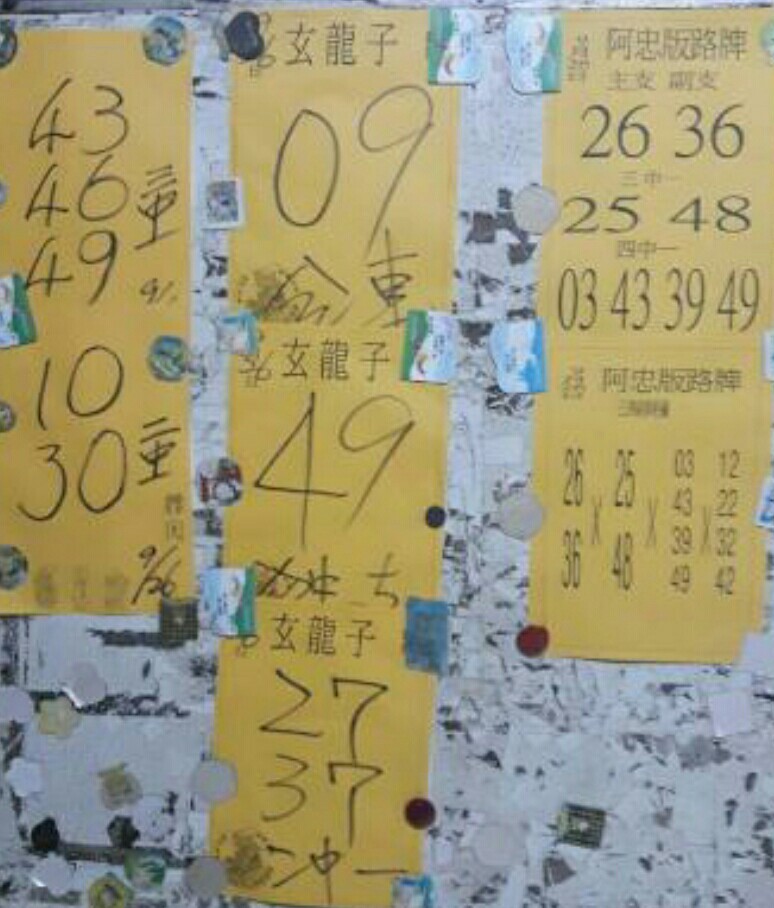 43
46
49
二重
10
30
二重
9/26
玄龍子
09
車
玄龍子
49
玄龍子
27
37
二冲一
阿忠版路牌
主支 副支
26 36
三中一
25 48
四中一
03 43 39 49
阿忠版路牌
26 25 03 12
43 22
X X X
39 32
36 48 49 42